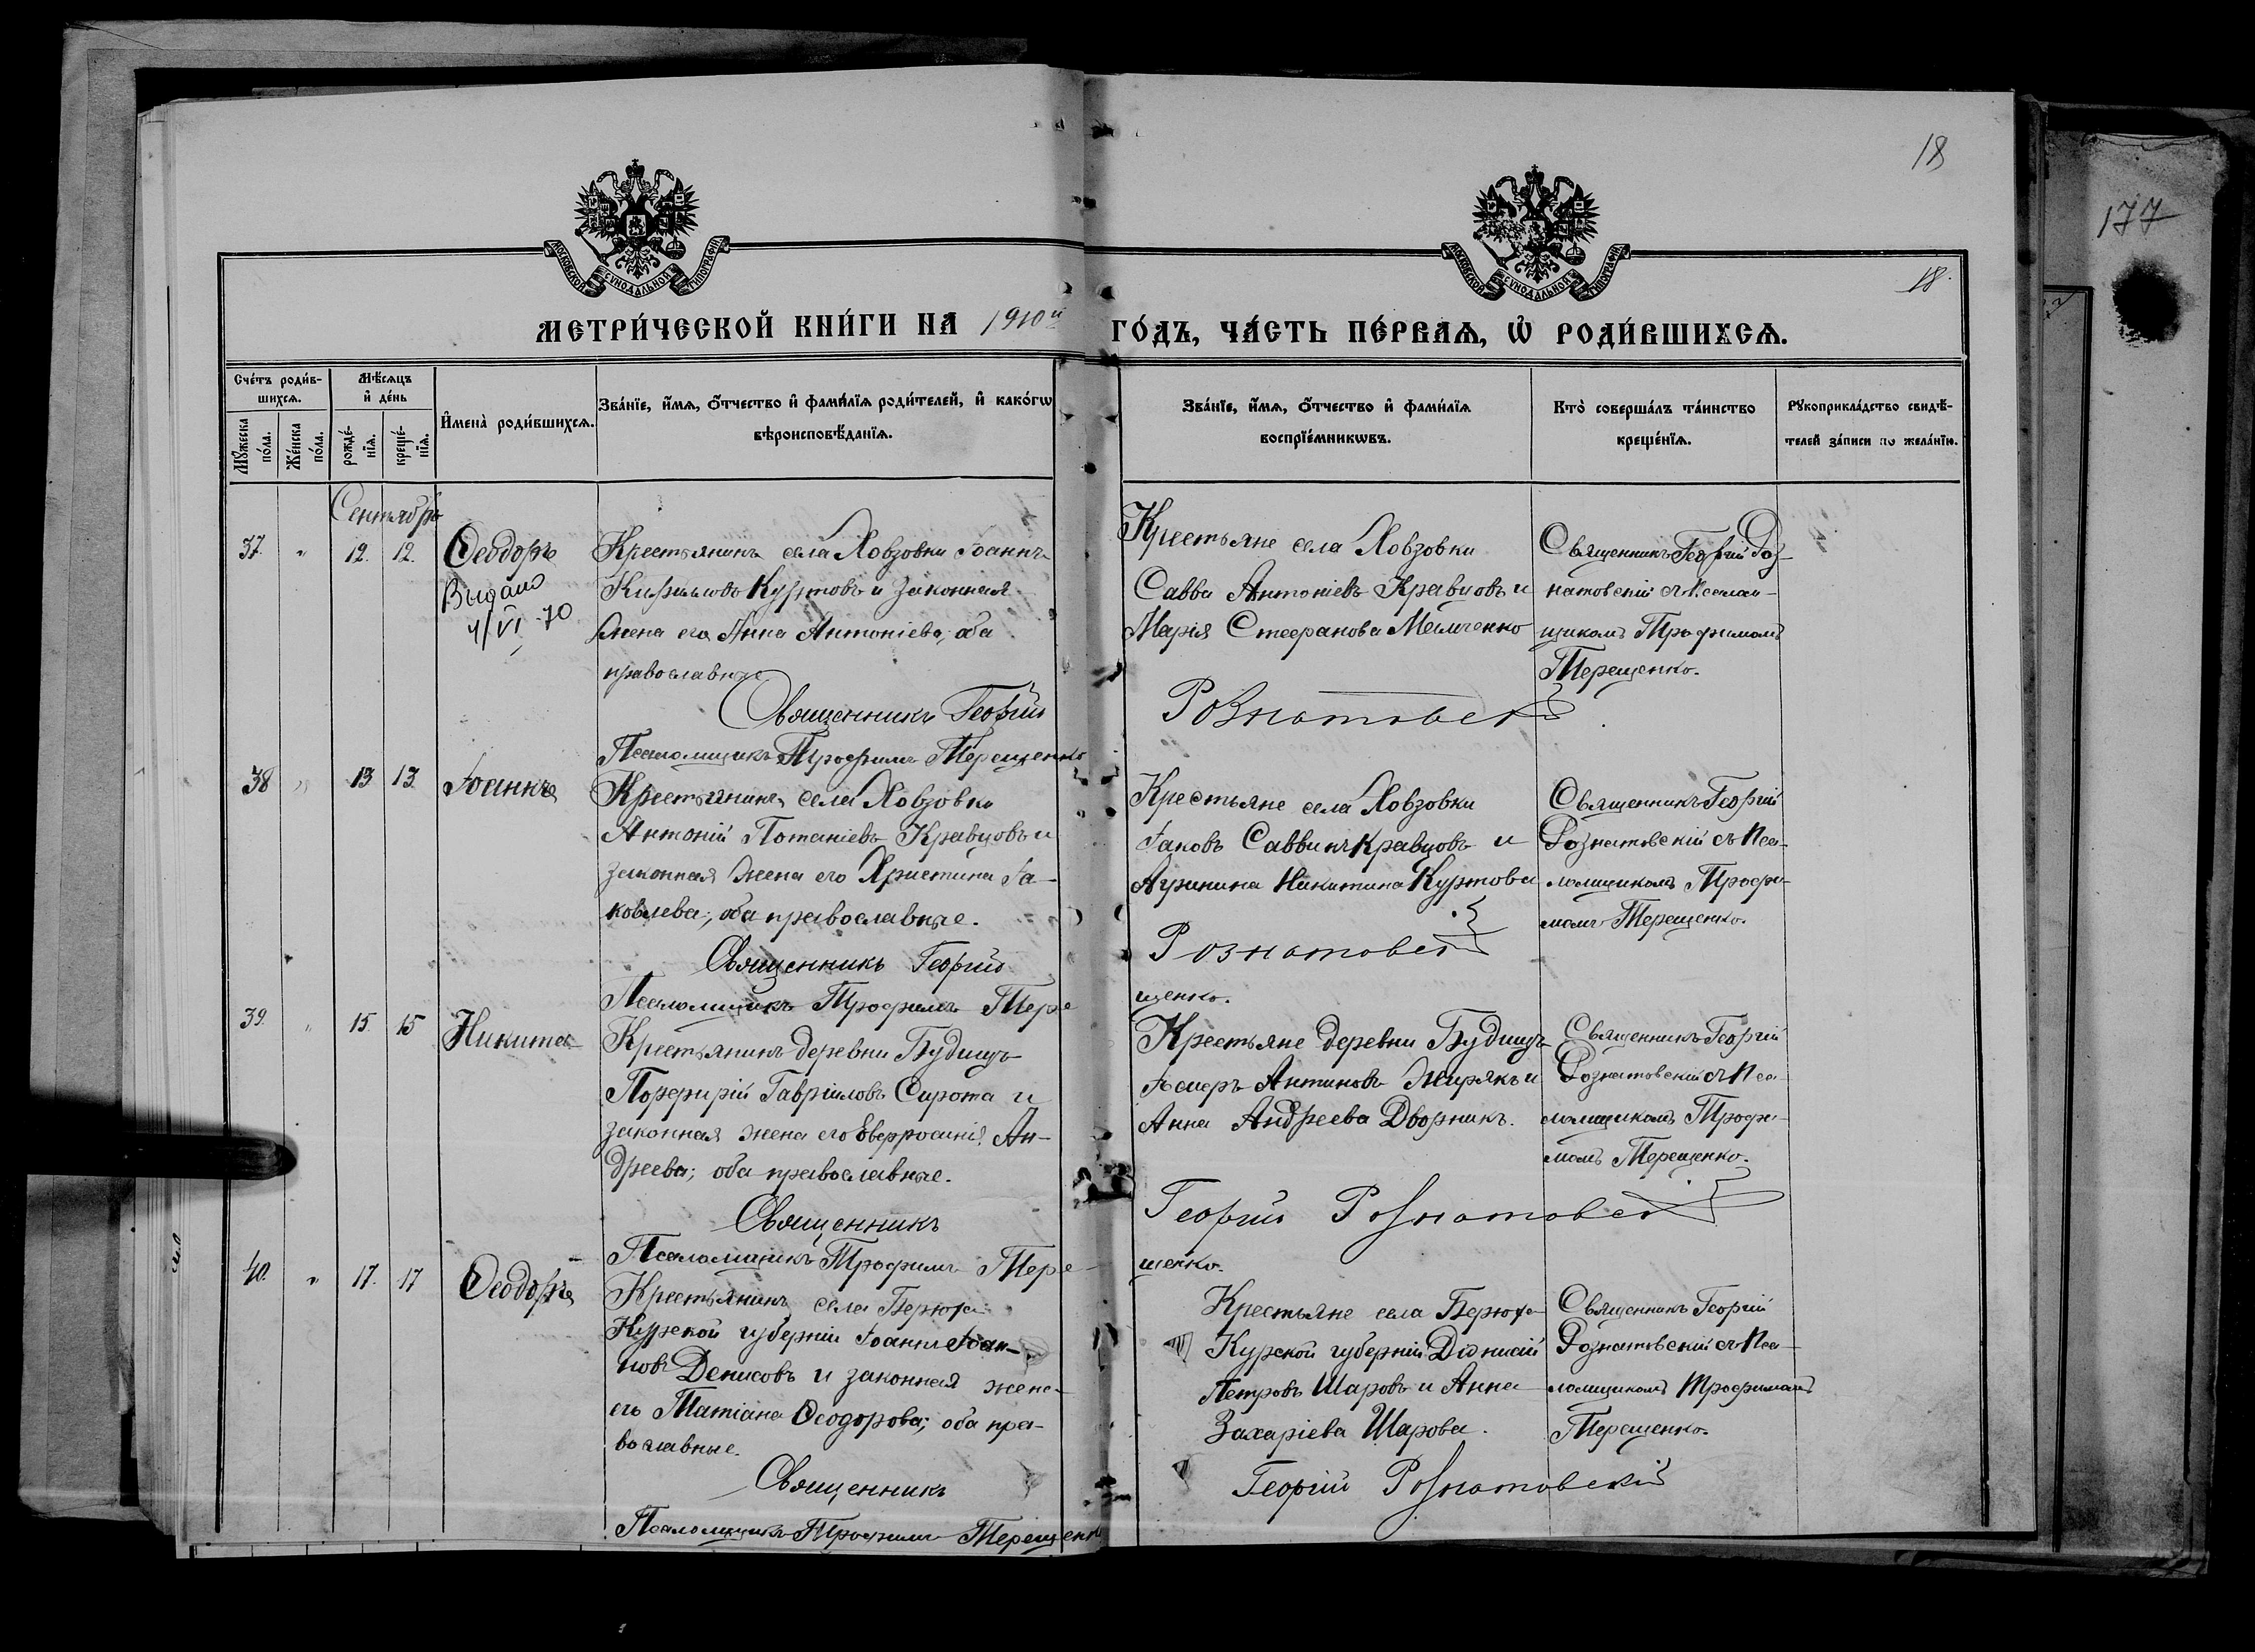 18
177
МОСКОВСКОЙ СѴНОДАЛЬНОЙ ТИПОГРАФІИ
МОСКОВСКОЙ СѴНОДАЛЬНОЙ ТИПОГРАФІИ
18.
МЕТРИ́ЧЕСКОЙ КНИ́ГИ НА 1910й ГО́ДЪ, ЧА́СТЬ ПЕ́РВАѦ, Ѡ҆ РОДИ́ВШИХСѦ.
Сче́тъ роди́в-
шихсѧ.
Мѣ́сѧцъ
и҆ де́нь
Мꙋ́жеска по́ла.
Же́нска по́ла.
рожде́-
нїѧ.
креще́-
нїѧ.
И҆мена̀ роди́вшихсѧ.
Зва́нїе, и҆́мѧ, ѻ҆́тчество и҆ фами́лїѧ роди́телей, и҆ како́гѡ
вѣроисповѣ́данїѧ.
Зва́нїе, и҆́мѧ, ѻ҆́тчество и҆ фами́лїѧ
воспрїе́мникѡвъ.
Кто̀ соверша́лъ та́инство
креще́нїѧ.
Рꙋкоприкла́дство свидѣ́-
телей за́писи по жела́нїю.
Сентябрь
37. " 12. 12. Ѳеодоръ
Выдано
4/VI-70
Крестьянинъ села Ховзовки Іоаннъ
Кирилловъ Куртовъ и законная
жена его Анна Антоніева, оба
православные.
Священникъ Георгій
Псаломщикъ Трофимъ Терещенко
Крестьяне села Ховзовки
Савва Антоніевъ Кравцовъ и
Марія Стефанова Мельченко
Рознатовскій
Священникъ Георгій Роз-
натовскій съ Псалом-
щикомъ Трофимомъ
Терещенко.
38 " 13 13 Іоаннъ
Крестьянинъ села Ховзовки
Антоній Потапіевъ Кравцовъ и
законная жена его Христина Іа-
ковлева; оба православные.
Священникъ Георгій
Псаломщикъ Трофимъ Тере-
Крестьяне села Ховзовки
Іаковъ Саввинъ Кравцовъ и
Акилина Никитина Куртова
Рознатовскій
щенко.
Священникъ Георгій
Рознатовскій съ Пса-
ломщикомъ Трофи-
момъ Терещенко.
39. " 15. 15 Никита
Крестьянинъ деревни Будищъ
Порфирій Гавріиловъ Сирота и
законная жена его Евфросинія Ан-
дреева; оба православные.
Священникъ
Псаломщикъ Трофимъ Тере-
Крестьяне деревни Будищъ
Антиповъ Жирякъ и
Анна Андреева Дворникъ.
Георгій Рознатовскій
щенко.
Священникъ Георгій
Рознатовскій съ Пса-
ломщикомъ Трофи-
момъ Терещенко.
40. " 17. 17 Ѳеодоръ
Крестьянинъ села Берюха
Курской губерніи Іоаннъ Іоан-
новъ Денисовъ и законная жена
его Татіана Ѳеодорова; оба пра-
вославные.
Священникъ
Псаломщикъ Трофимъ Терещенко
Крестьяне села Берюха
Курской губерніи Діонисій
Петровъ Шаровъ и Анна
Захаріева Шарова.
Георгій Рознатовскій
Священникъ Георгій
Рознатовскій съ Пса-
ломщикомъ Трофимомъ
Терещенко.